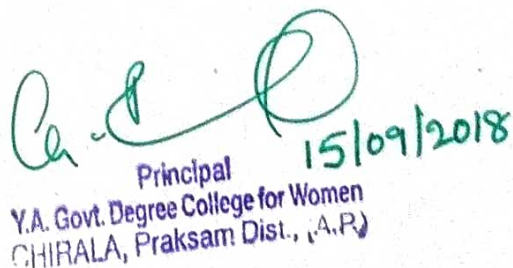 15/09/2018
Principal
Y.A. Govt. Degree College for Women
CHIRALA, Praksam Dist., (A.P.)